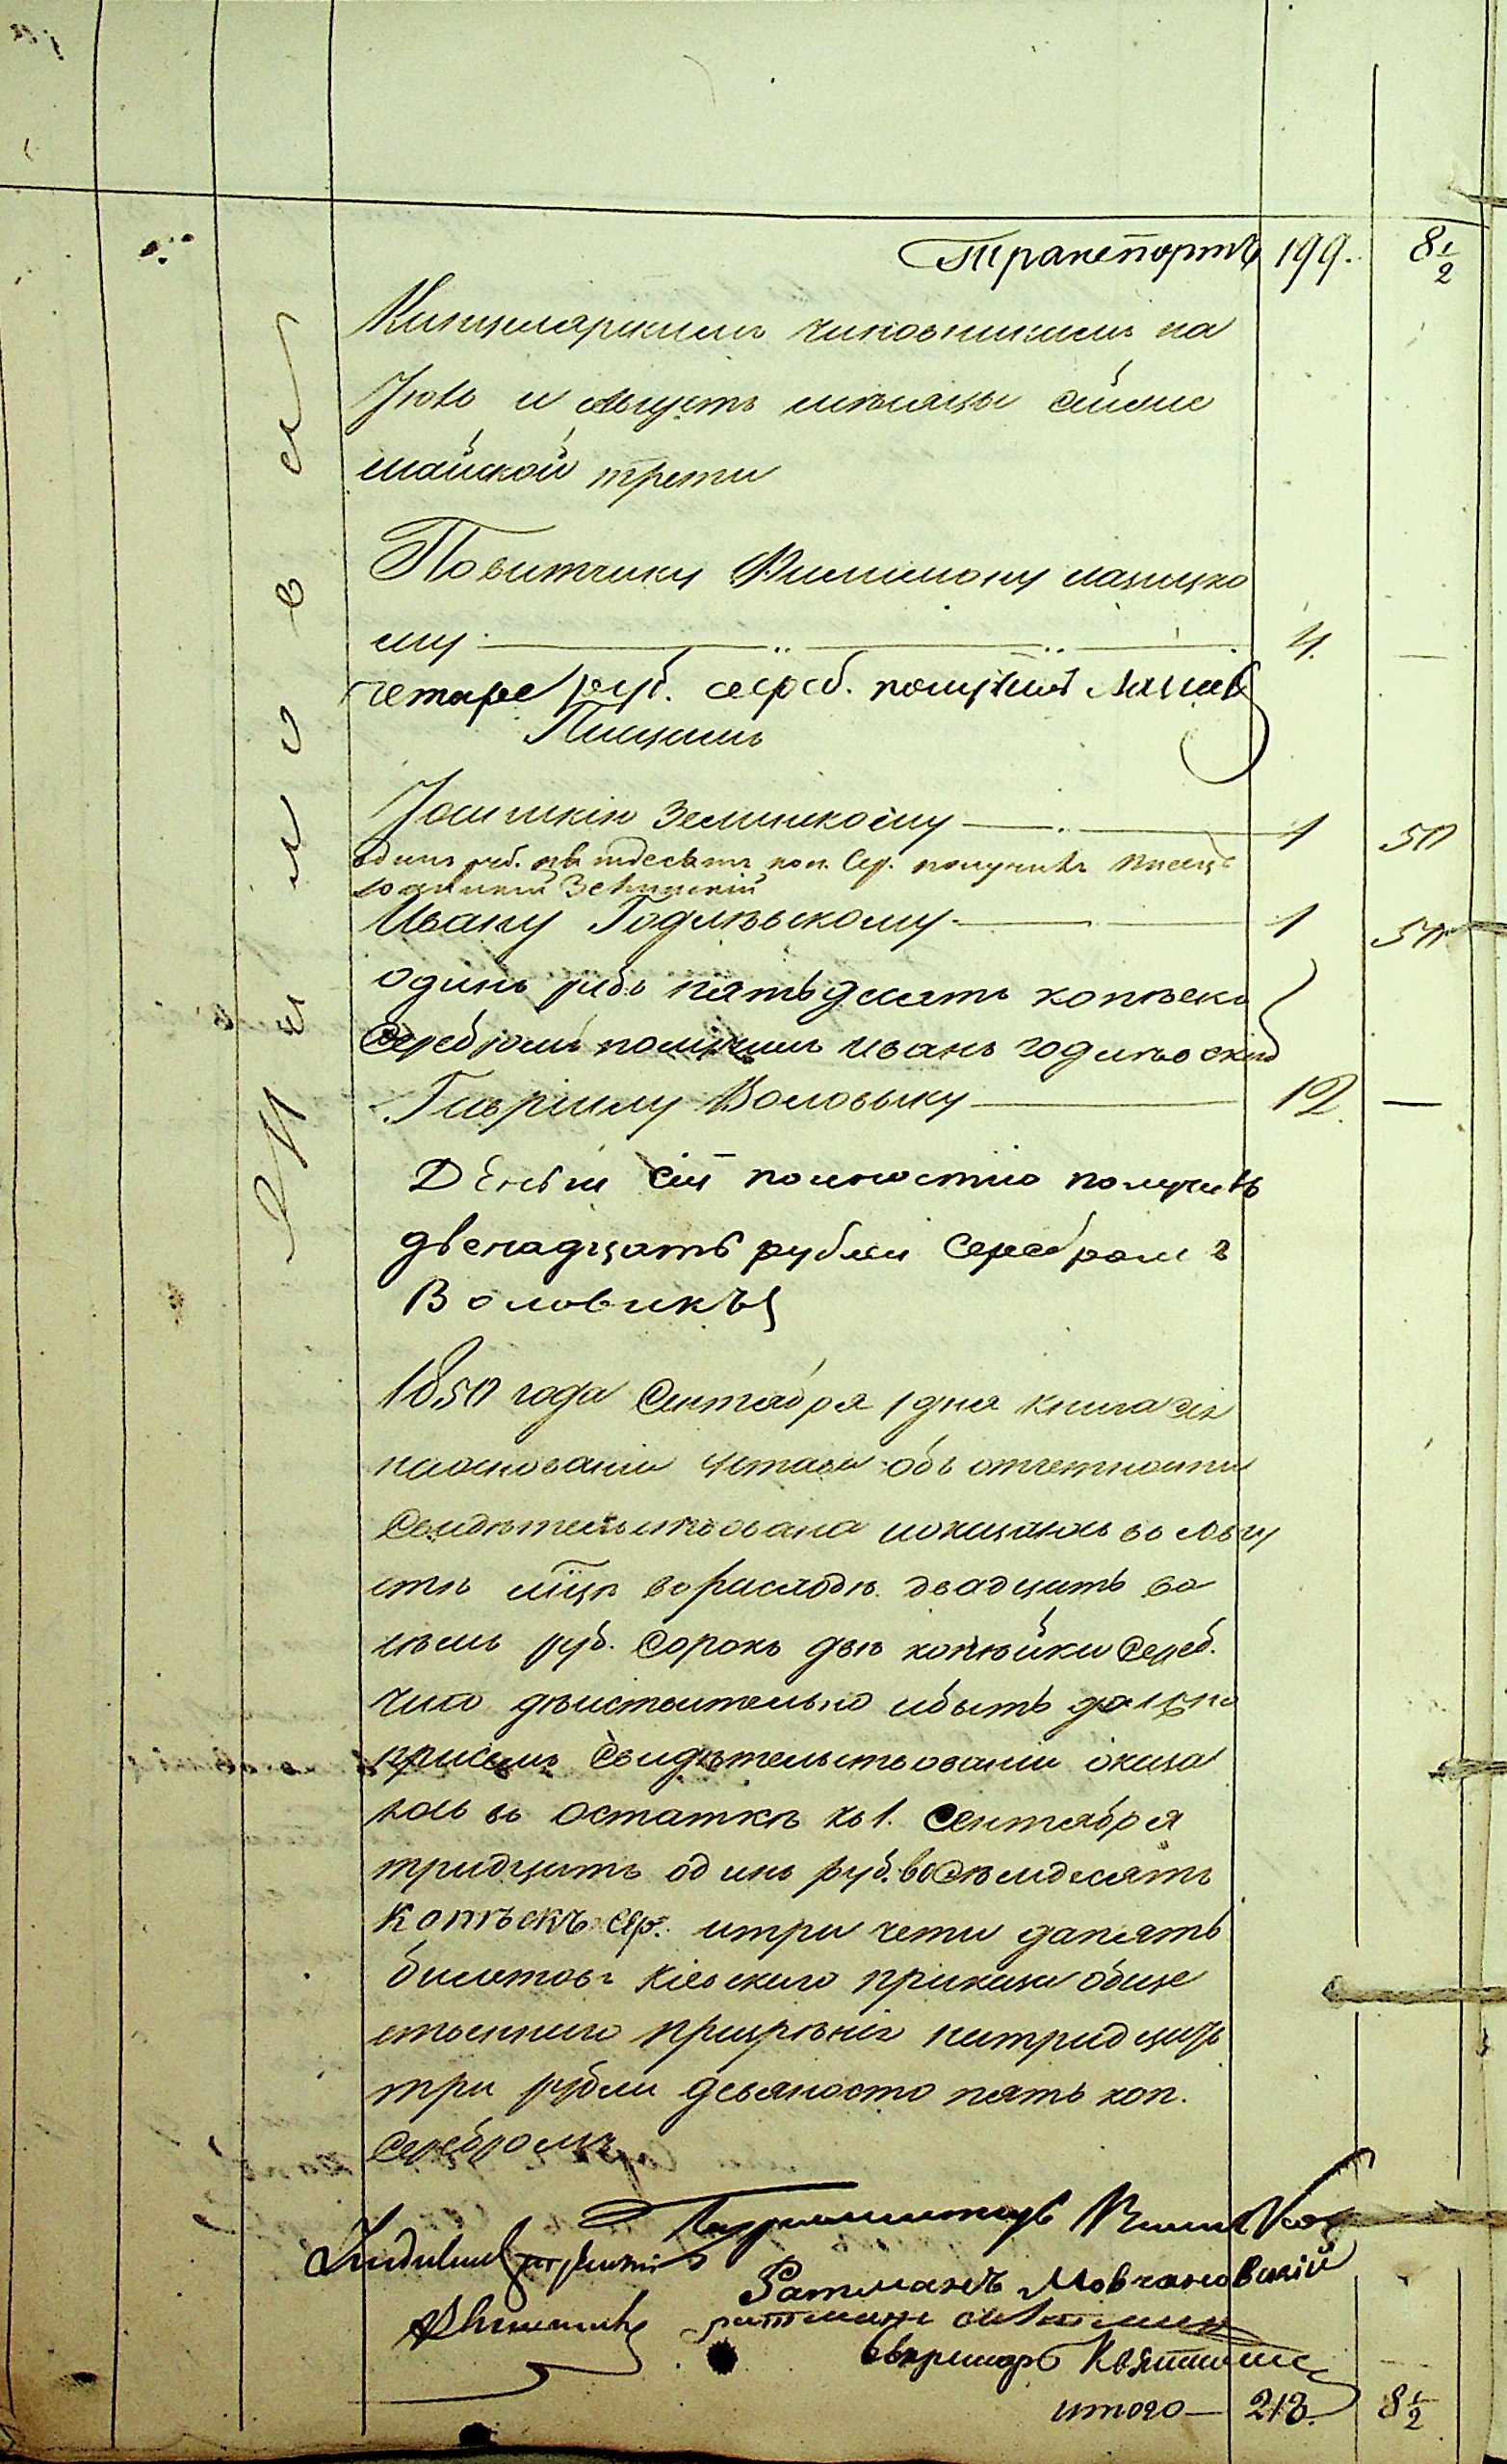 Транспортъ 199. 8 1/2
Канцелярскимъ чиновникамъ на
Іюль и Августъ мѣсяцы сиіоне
майской трети
Повитчику Филимону лазицко
му 4. —
четаре руб. сереб. получилъ
Писцамъ
Іоаникію Зелинскому — 1 50
одинъ руб. пятдесятъ коп. Сер. получилъ писецъ
Іоаникій Зелинскій
Ивану Годлевскому — 1 50
одинъ рубъ пятьдесятъ копѣекъ
Серебромъ получилъ иванъ годлевскій
Гавріилу Воловыку — 12 —
Деньги сіи полностію получилъ
двенадцать рубли Серебромъ
Воловикъ
1850 года Сентября 1 дня книга сія
наосновании устава объ отчетности
Свидѣтельствована иоказалось во Авгу
стѣ мцѣ ворасходѣ двадцать во
семь руб. Сорокъ двѣ копѣйки Сереб.
чило дѣйствительно ибыть должно
присемъ Свидѣтельствовании оказа
лось въ остаткѣ къ 1. Сентября
тридцать одинъ руб. восѣмдесятъ
копѣекъ сер. итри чети дапять
билетовъ Кіевскаго приказа обще
ственнаго призрѣнія натридцать
три рубли девяносто пять коп.
Серебромъ
Бургомистръ
Ратманъ Мовчановскій
ратманъ
Секритарь
итого — 218. 8 1/2